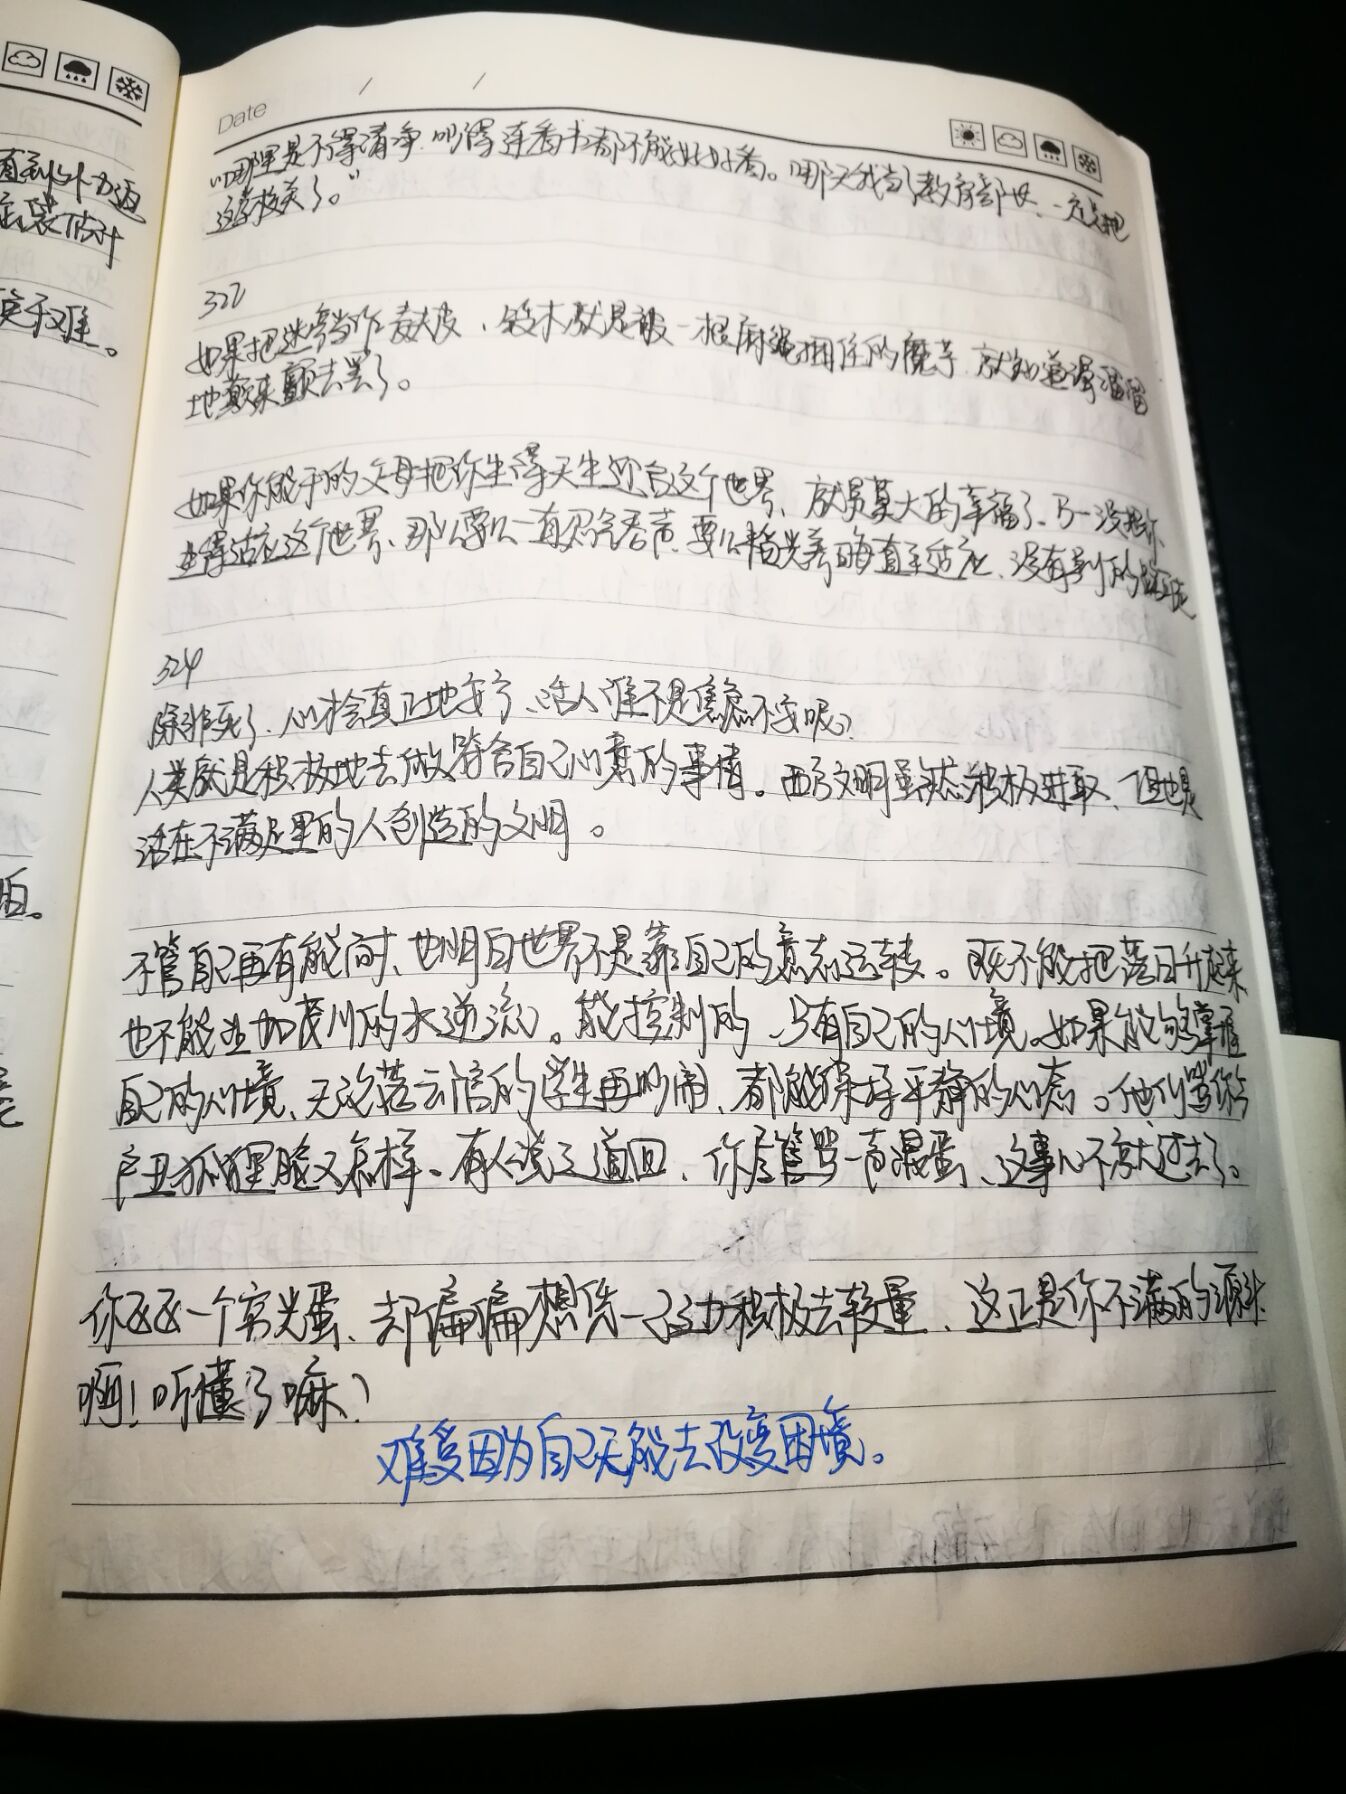 Date / /
"哪里是不得清净.吵得连看书都不能好好看。哪天我当了教育部长、一定要把
这学校关了。"
322
如果把迷亭当作鼓皮、铃木就是被一根麻绳捆住的魔芋.就知道滑溜溜
地颠来颤去罢了。
如果你能干的父母把你生得天生适合这个世界、就是莫大的幸福了、万一没把你
生得适应这个世界、那么要么一直忍气吞声.要么韬光养晦直至适应、没有别的
324
除非死了.人心指真正地安了、活人谁不是焦虑不安呢?
人类就是积极地去做符合自己心意的事情。西方文明虽然积极进取、但也是
活在不满足里的人创造的文明。
不管自己再有能耐、也明白世界不是靠自己的意志运转。既不能把落日升起来
也不能让加茂川的水逆流。能控制的、只有自己的心境。如果能够掌握
自己的心境、无论落云馆的学生再吵闹、都能保持平静的心态。他们骂你
丑狐狸脸又怎样。有人说三道四、你尽管骂一声混蛋、这事儿不就过去了。
你区区一个穷光蛋、却偏偏想凭一己之力积极去较量、这正是你不满的源头
啊!听懂了嘛?
难受因为自己无能去改变困境。
直到外力逼
定于难。
怕。